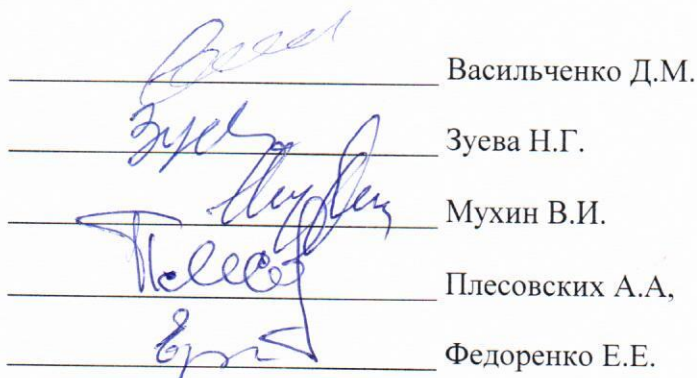 Васильченко Д.М.
Зуева Н.Г.
Мухин В.И.
Плесовских А.А,
Федоренко Е.Е.